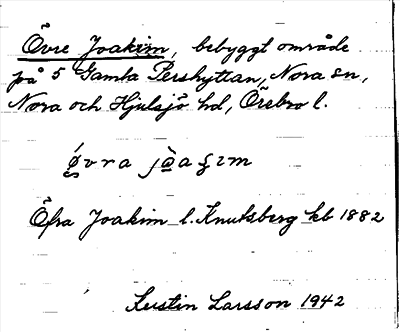 Övre Joakim, bebyggt område
på 5 Gamla Pershyttan, Nora sn,
Nora och Hjulsjö hd, Örebro l.
Öfra Joakim l. Knutsberg kb 1882
Kerstin Larsson 1942